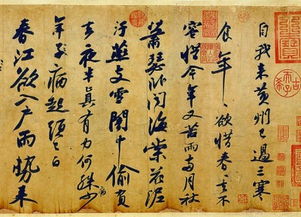 自我来黄州已過三寒
食年〻欲惜春〻去不
容惜今年又苦雨兩月秋
蕭瑟卧聞海棠花泥
汙燕支雪闇中偷負
去夜半真有力何殊少
年子病起頭已白
春江欲入户雨勢来